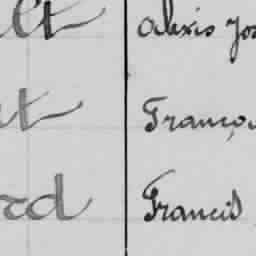 lt Alexis Jos
nt Françoi
rd Francis